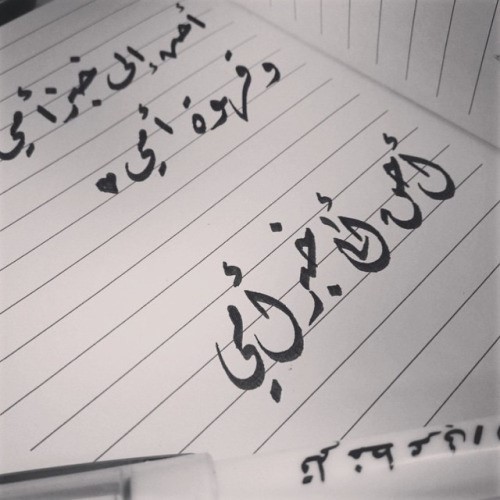 أحن إلى خبز أمي
وقهوة أمي
أحن إلى خبز أمي